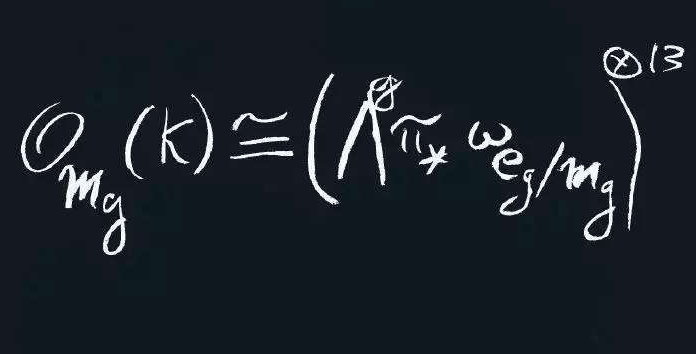 𝒪_{ℳ_g}(K) ≅ (Λ^g π_* ω_{𝒞_g/ℳ_g})^{⊗13}